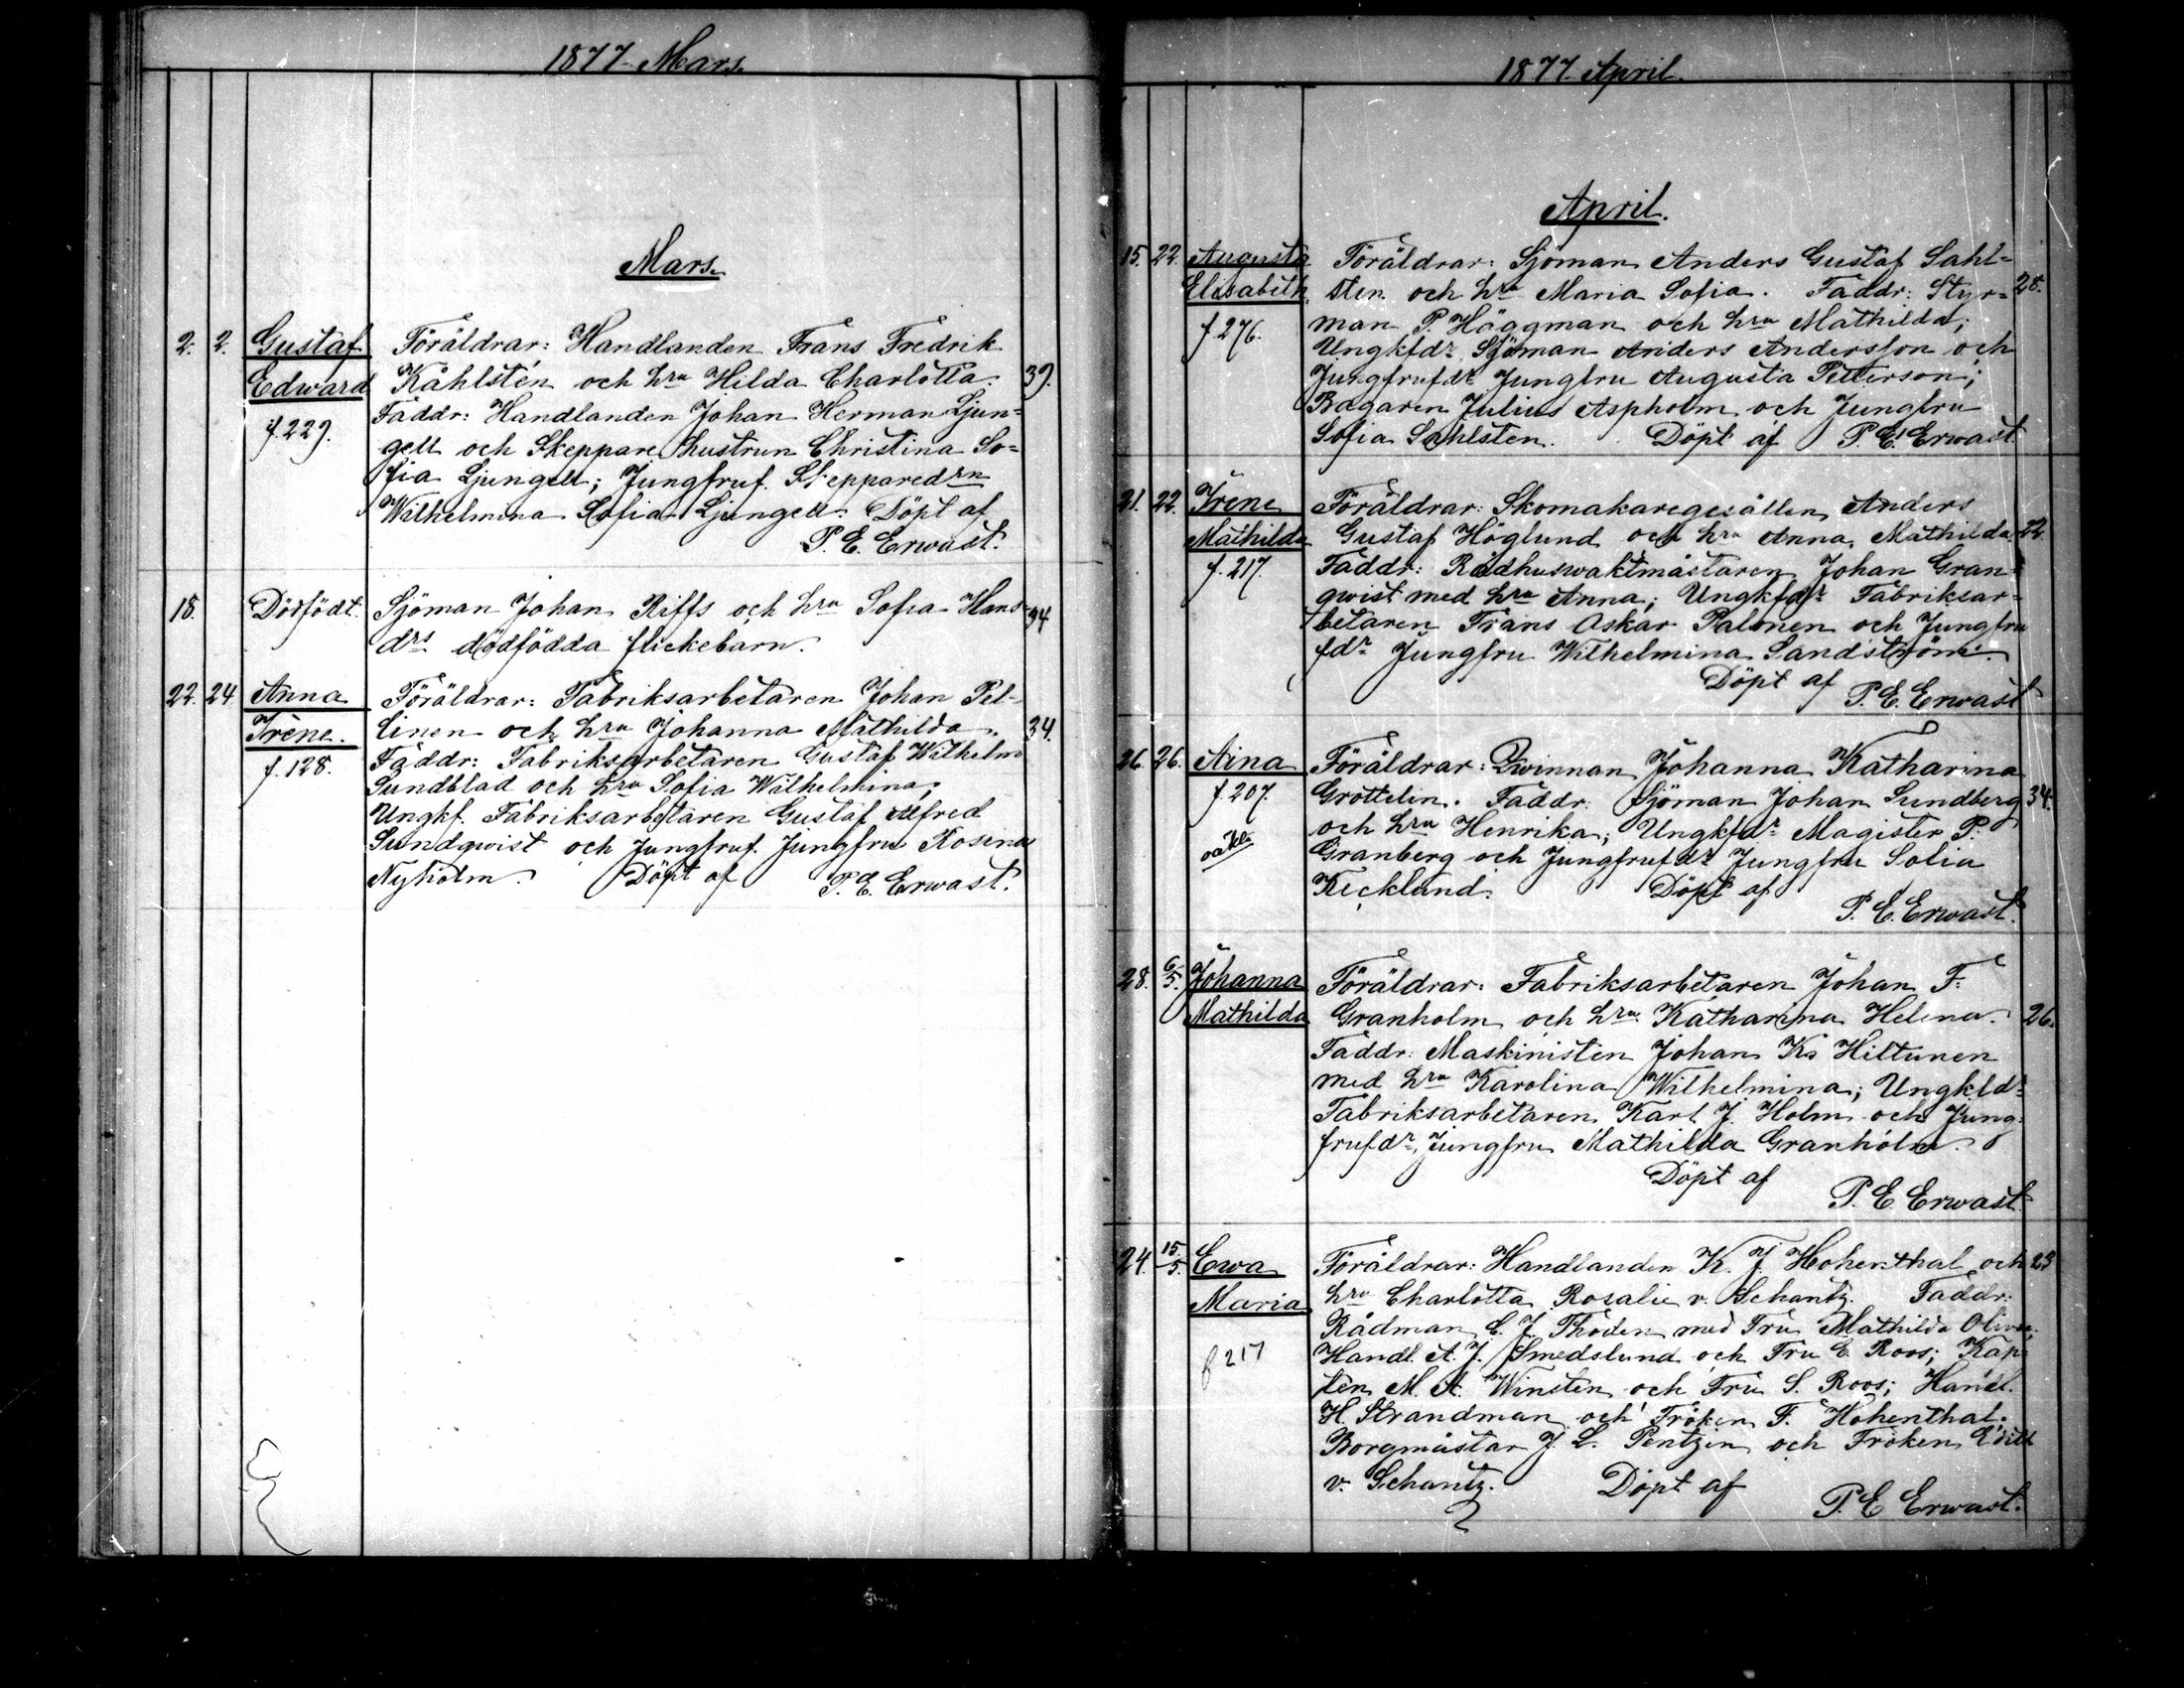 1877 Mars.
Mars.
2. 2. Gustaf Föräldrar: Handlanden Frans Fredrik
Edward Kåhlstén och hru Hilda Charlotta. 39.
f. 229. Faddr: Handlanden Johan Herman Ljun=
gell och Skeppare hustrun Christina So=
fia Ljungell; Jungfruf. Skepparedrn
Wilhelmina Sofia Ljungell. Döpt af
P. E. Erwast.
18. Dödfödt. Sjöman Johan Riffs och hru Sofia Hans= 34
drs dödfödda flickebarn.
22. 24 Anna Föräldrar: Fabriksarbetaren Johan Pel-
Iréne. linen och hru Johanna Mathilda. 34.
f. 128. Faddr: Fabriksarbetaren Gustaf Wilhelm
Sundblad och hru Sofia Wilhelmina;
Ungkf. Fabriksarbetaren Gustaf Alfred
Sundqwist och Jungfruf. Jungfru Rosina
Nyholm. Döpt af P. E. Erwast.
1877 April.
April.
15. 22. Augusta Föräldrar: Sjöman Anders Gustaf Sahl=
Elisabeth. sten och hru Maria Sofia. Faddr: Styr= 28.
f 276. man P. Häggman och hru Mathilda;
Ungkfdr Sjöman Anders Andersson och
Jungfrufdr Jungfru Augusta Petterson;
Bagaren Julius Aspholm och Jungfru
Sofia Sahlsten. Döpt af P. E. Erwast
21. 22. Iréne Föräldrar: Skomakaregesällen Anders
Mathilda Gustaf Höglund och hru Anna Mathilda. 22.
f. 217. Faddr: Rådhuswaktmästaren Johan Gran=
qwist med hru Anna; Ungkfdr Fabriksar=
betaren Frans Oskar Palonen och Jungfru
fdr Jungfru Wilhelmina Sandström.
Döpt af P. E. Erwast
26. 26. Aina Föräldrar: Qwinnan Johanna Katharina
f. 207. Grottelin. Faddr. Sjöman Johan Sundberg 34.
oäkta och hru Henrika; Ungkfdr Magister P.
Granberg och Jungfrufdr Jungfru Sofia
Kecklund. Döpt af
P. E. Erwast.
28. 6/5. Johanna Föräldrar: Fabriksarbetaren Johan F.
Mathilda Granholm och hru Katharina Helena. 26.
Faddr: Maskinisten Johan Ks Hiltunen
med hru Karolina Wilhelmina; Ungkfdr
Fabriksarbetaren Karl J. Holm och Jung=
frufdr Jungfru Mathilda Granholm.
Döpt af
P. E. Erwast.
24. 15/5. Ewa Föräldrar: Handlanden K. J. Hohenthal och 23
Maria hru Charlotta Rosalie v. Schantz. Faddr:
Rådman C. J. Thodén med Fru Mathilda Olivia;
f 217 Handl. A. J. Smedslund och Fru E. Roos; Kap=
ten M. A. Winstén och Fru S. Roos; Handl.
H. Strandman och Fröken F. Hohenthal.
Borgmästar J. L. Pentzin och Fröken Edith
v. Schantz. Döpt af
P. E. Erwast.